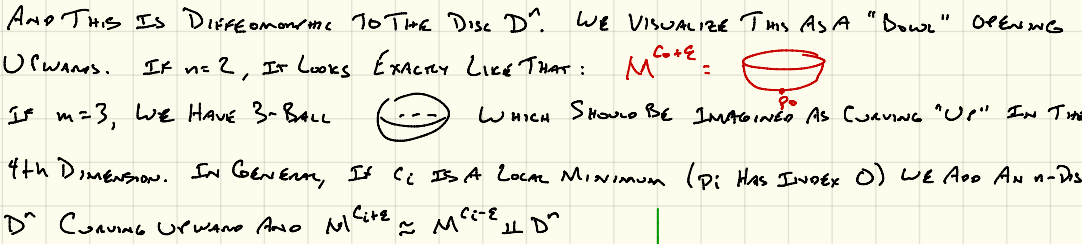 AND THIS IS DIFFEOMORPHIC TO THE DISC Dⁿ. WE VISUALIZE THIS AS A "BOWL" OPENING
UPWARDS. IF n=2, IT LOOKS EXACTLY LIKE THAT: M^{C₀+ε} = p₀
IF m=3, WE HAVE 3-BALL WHICH SHOULD BE IMAGINED AS CURVING "UP" IN THE
4th DIMENSION. IN GENERAL, IF Cᵢ IS A LOCAL MINIMUM (pᵢ HAS INDEX 0) WE ADD AN n-DIS
Dⁿ CURVING UPWARD AND M^{Cᵢ+ε} ≈ M^{Cᵢ-ε} ⨿ Dⁿ